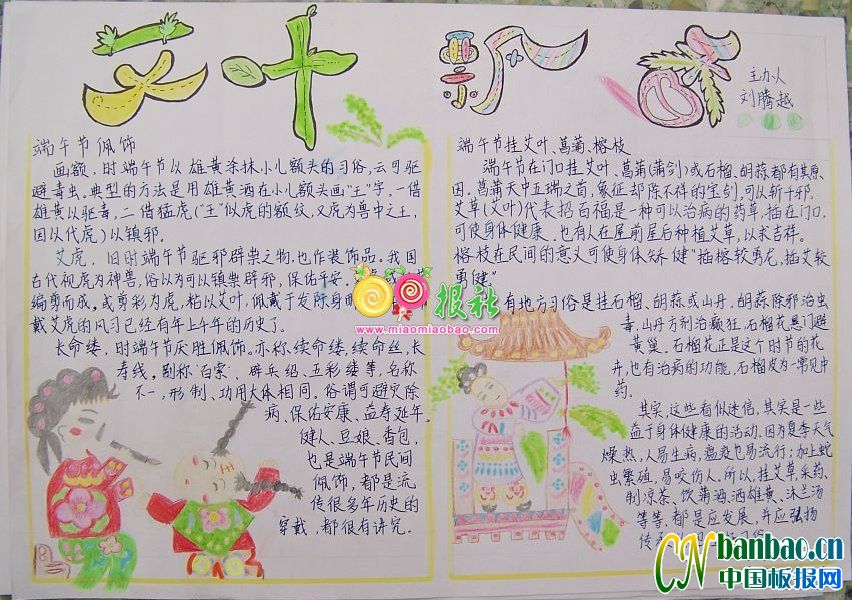 艾叶飘香
主办人
刘腾越
端午节佩饰
画额，时端午节以雄黄涂抹小儿额头的习俗，云可驱
避毒虫。典型的方法是用雄黄酒在小儿额头画“王”字，一借
雄黄以驱毒，二借猛虎（“王”似虎的额纹，又虎为兽中之王，
因以代虎）以镇邪。
艾虎，旧时端午节驱邪辟祟之物，也作装饰品。我国
古代视虎为神兽，俗以为可以镇祟辟邪、保佑平安。
编剪而成，或剪彩为虎，粘以艾叶，佩戴于发际身
戴艾虎的风习已经有年上千年的历史了。
长命缕，时端午节厌胜佩饰。亦称续命缕、续命丝、长
寿线，别称“百索”、辟兵绍、五彩缕等，名称
不一，形制、功用大体相同。俗谓可避灾除
病、保佑安康、益寿延年。
健人、豆娘、香包，
也是端午节民间
佩饰，都是流
传很多年历史的
穿戴，都很有讲究。
端午节挂艾叶、菖蒲、榕枝
端午节在门口挂艾叶、菖蒲（蒲剑）或石榴、胡蒜都有其原
因。菖蒲天中五瑞之首，象征却除不祥的宝剑，可以斩千邪。
艾草（艾叶）代表招百福是一种可以治病的药草，插在门口，
可使身体健康。也有人在屋前屋后种植艾草，以求吉祥。
榕枝在民间的意义可使身体矫健“插榕较勇龙，插艾较
勇健”
有地方习俗是挂石榴、胡蒜或山丹，胡蒜除邪治虫
毒，山丹方剂治癫狂。石榴花悬门避
黄巢。石榴花正是这个时节的花
卉，也有治病的功能，石榴皮为一常见中
药。
其实，这些看似迷信，其实是一些
益于身体健康的活动。因为夏季天气
燥热，人易生病，瘟疫也易流行；加上蛇
虫繁殖，易咬伤人，所以，挂艾草，采药、
制凉茶、饮蒲酒、洒雄黄、沐兰汤
等等，都是应发展，并应强扬
传
报社
www.miaomiaobao.com
CNbanbao.cn
中国板报网